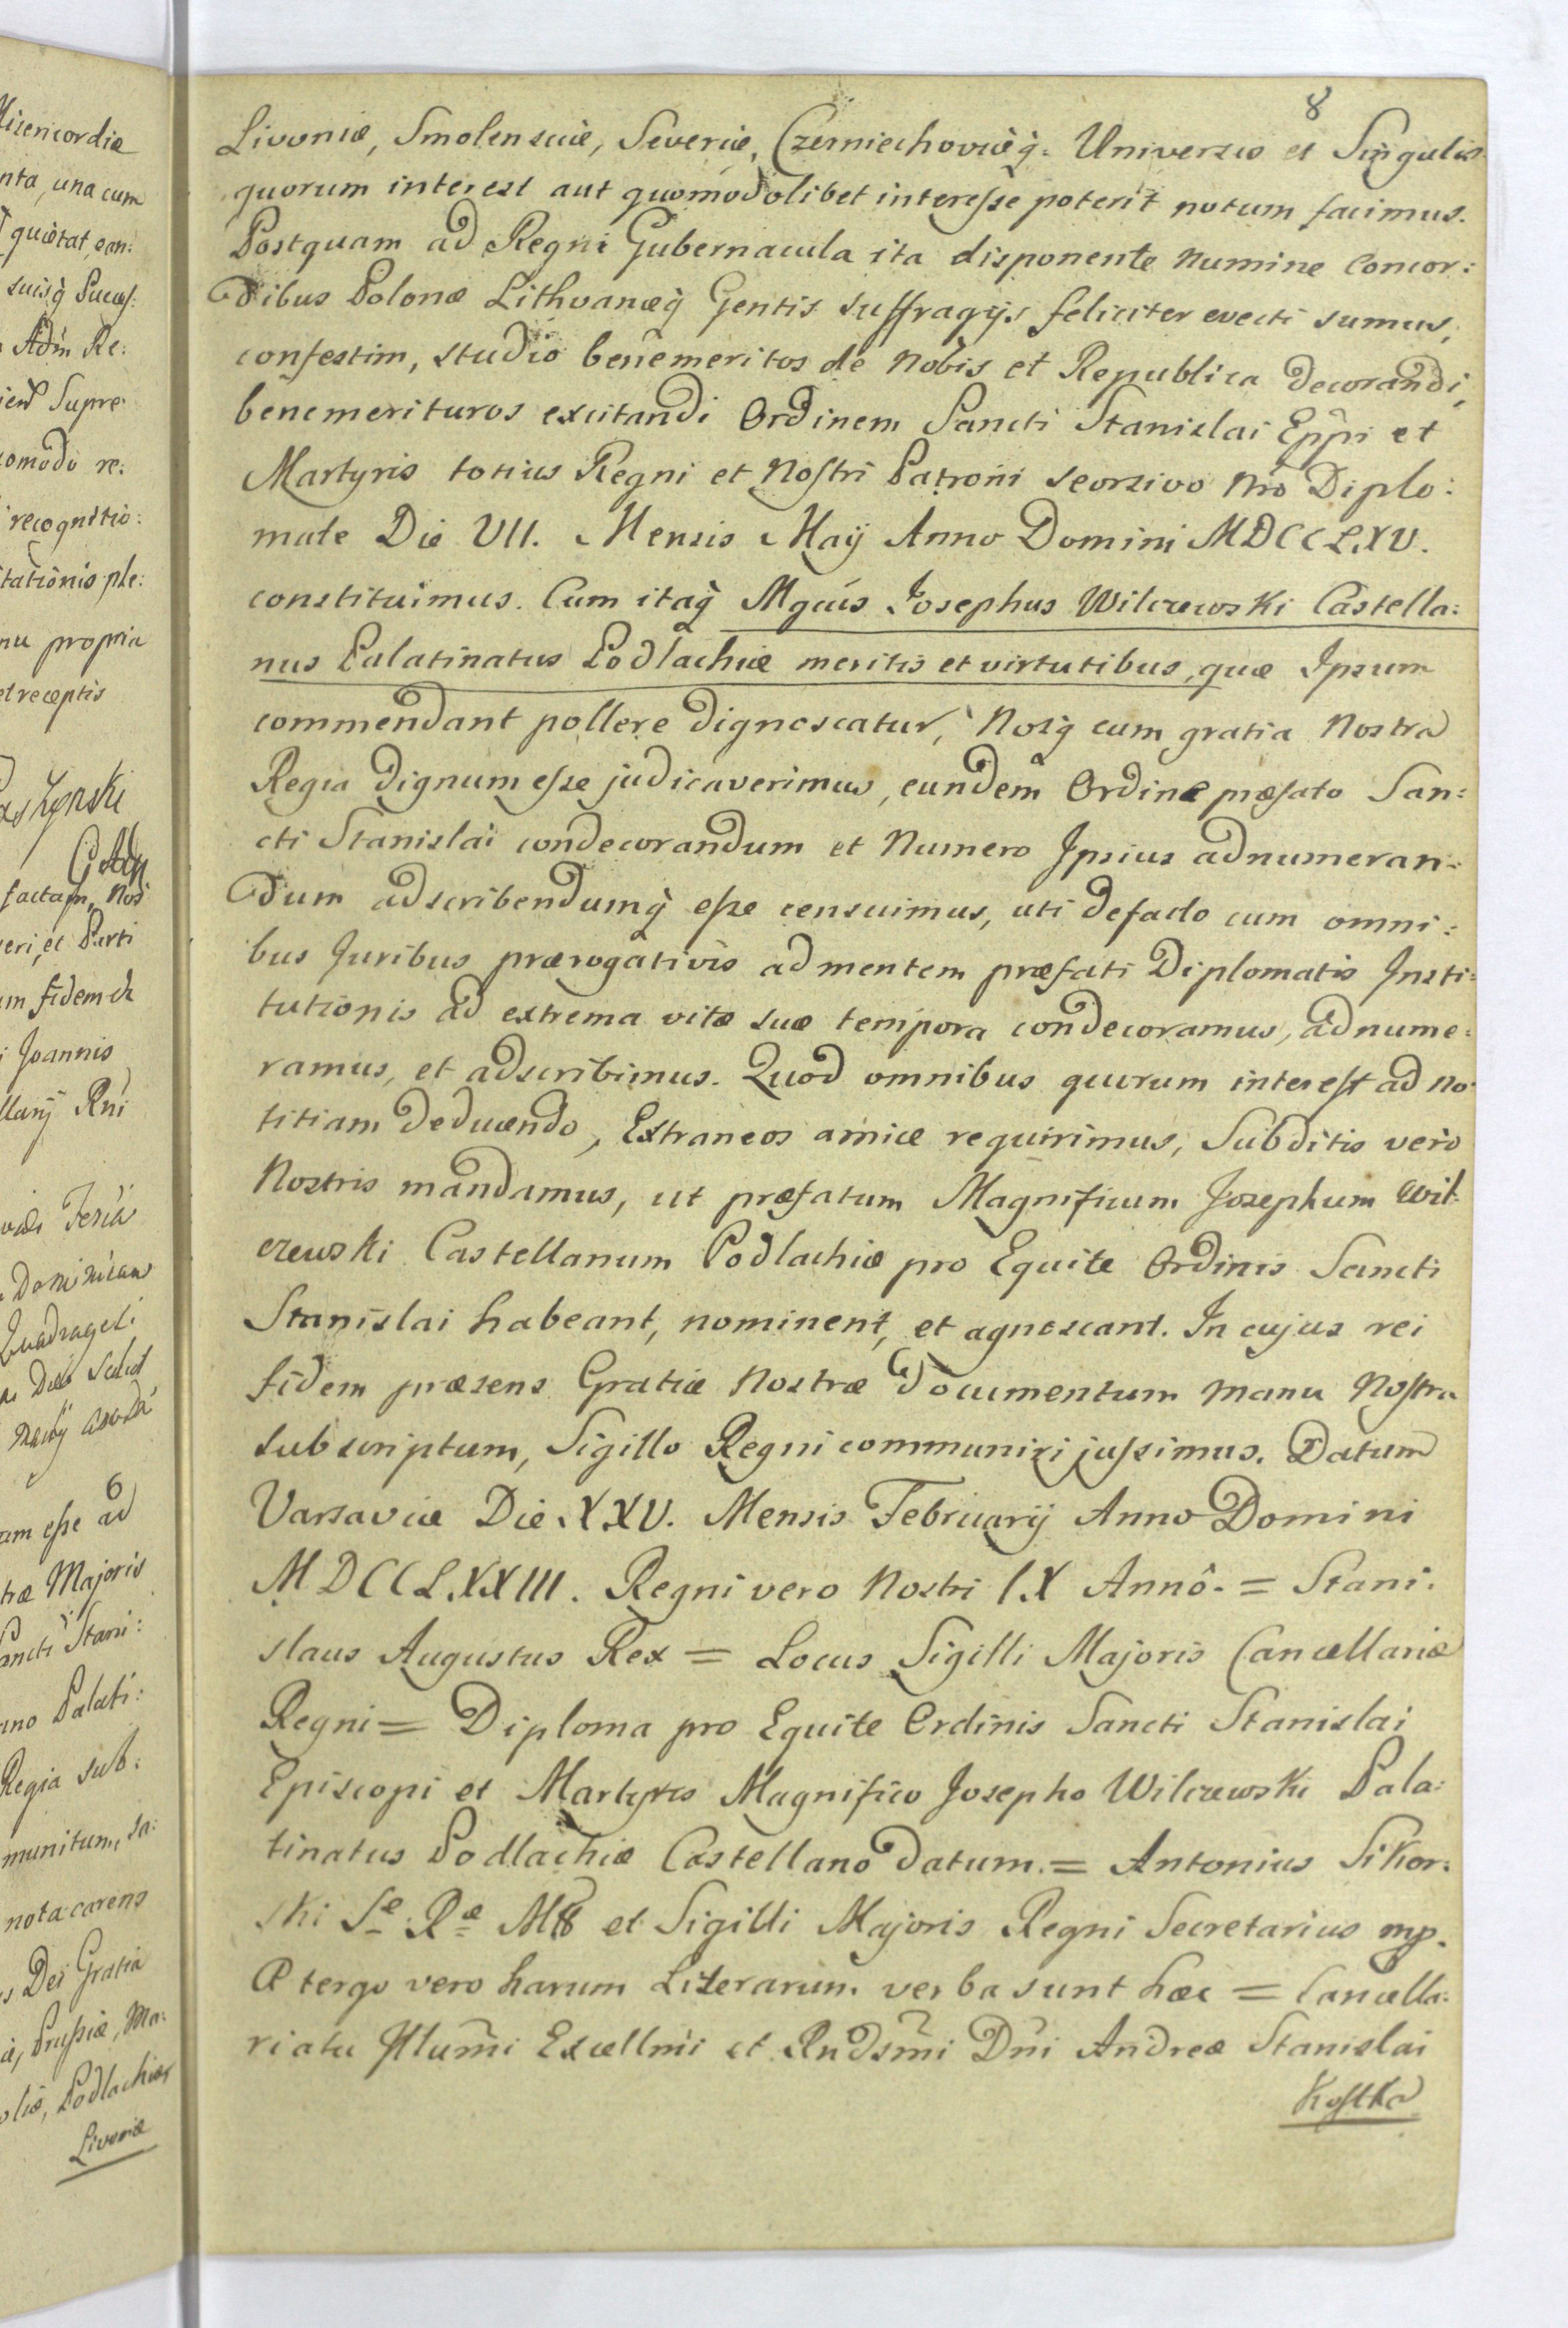 Misericordiæ
nta, una cum
quietat, ean:
suisq̀ Succes:
Adm̄ Re:
Supre
comodo re:
recognitio:
tationis ple:
nu propria
et receptis
factam, Nos
veri, et Parti
um fidem
Joannis
llarij Rn̄i
Feria
Dominicam
Quadrages
um esse ad
træ Majoris
ancti Stani:
ano Palati:
Regia sub:
munitum, sa:
nota carens
s Dei Gratia
æ, Prussiæ, Ma:
oliæ, Podlachiæ,
Livoniæ
8
Livoniæ, Smolensciæ, Severiæ, Czerniechoviæq̀. Universis et Singulis
quorum interest aut quomodolibet interesse poterit notum facimus.
Postquam ad Regni Gubernacula ita disponente Numine Concor:
dibus Polonæ Lithvanæq̀ Gentis suffragijs feliciter evecti sumus,
confestim, studio benemeritos de Nobis et Republica decorandi,
benemerituros excitandi Ordinem Sancti Stanislai Ep̄pi et
Martyris totius Regni et Nostri Patroni seorsivo Nr̄o Diplo:
mate Die VII. Mensis Maÿ Anno Domini MDCCLXV.
constituimus. Cum itaq̀ Mgcus Josephus Wilczewski Castella:
nus Palatinatus Podlachiæ meritis et virtutibus, quæ Ipsum
commendant pollere dignoscatur, Nosq̀ eum gratia Nostra
Regia dignum esse judicaverimus, eundem Ordine præfato San:
cti Stanislai condecorandum et Numero Ipsius adnumeran:
dum adscribendumq̀ esse censuimus, uti de facto cum omni:
bus Juribus prærogativis ad mentem præfati Diplomatis Insti:
tutionis ad extrema vitæ suæ tempora condecoramus, adnume:
ramus, et adscribimus. Quod omnibus quorum interest ad no:
titiam deducendo, Extraneos amice requirimus, Subditis vero
Nostris mandamus, ut præfatum Magnificum Josephum Wil:
czewski Castellanum Podlachiæ pro Equite Ordinis Sancti
Stanislai habeant, nominent, et agnoscant. In cujus rei
fidem præsens Gratiæ Nostræ documentum manu Nostra
subscriptum, Sigillo Regni communiri jussimus. Datum
Varsaviæ Die XXV. Mensis Februarÿ Anno Domini
MDCCLXXIII. Regni vero Nostri IX Annô. = Stani:
slaus Augustus Rex = Locus Sigilli Majoris Cancellariæ
Regni = Diploma pro Equite Ordinis Sancti Stanislai
Episcopi et Martyris Magnifico Josepho Wilczewski Pala:
tinatus Podlachiæ Castellano datum. = Antonius Sikor:
ski Sᵉ Rᵉ et Sigilli Majoris Regni Secretarius mp.
A tergo vero harum Literarum verba sunt hæc = Cancella:
riatu Illum̄i Excellm̄i et Rndsm̄i Dn̄i Andreæ Stanislai
Kostka